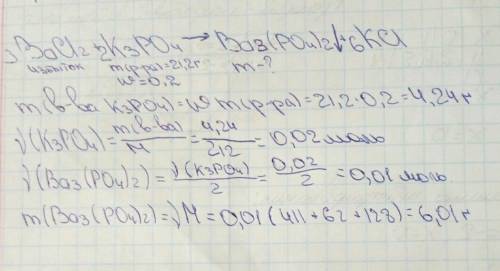 BaCl₂ + 2K₃PO₄ → Ba₃(PO₄)₂↓ + 6KCl
избыток m(р-ра)=21,2г m-?
w=0,2
m(в-ва K₃PO₄)=w·m(р-ра)=21,2·0,2=4,24г
ν(K₃PO₄)=m(в-ва)/M=4,24/212=0,02моль
ν(Ba₃(PO₄)₂)=ν(K₃PO₄)/2=0,02/2=0,01моль
m(Ba₃(PO₄)₂)=νM=0,01(411+62+128)=6,01г